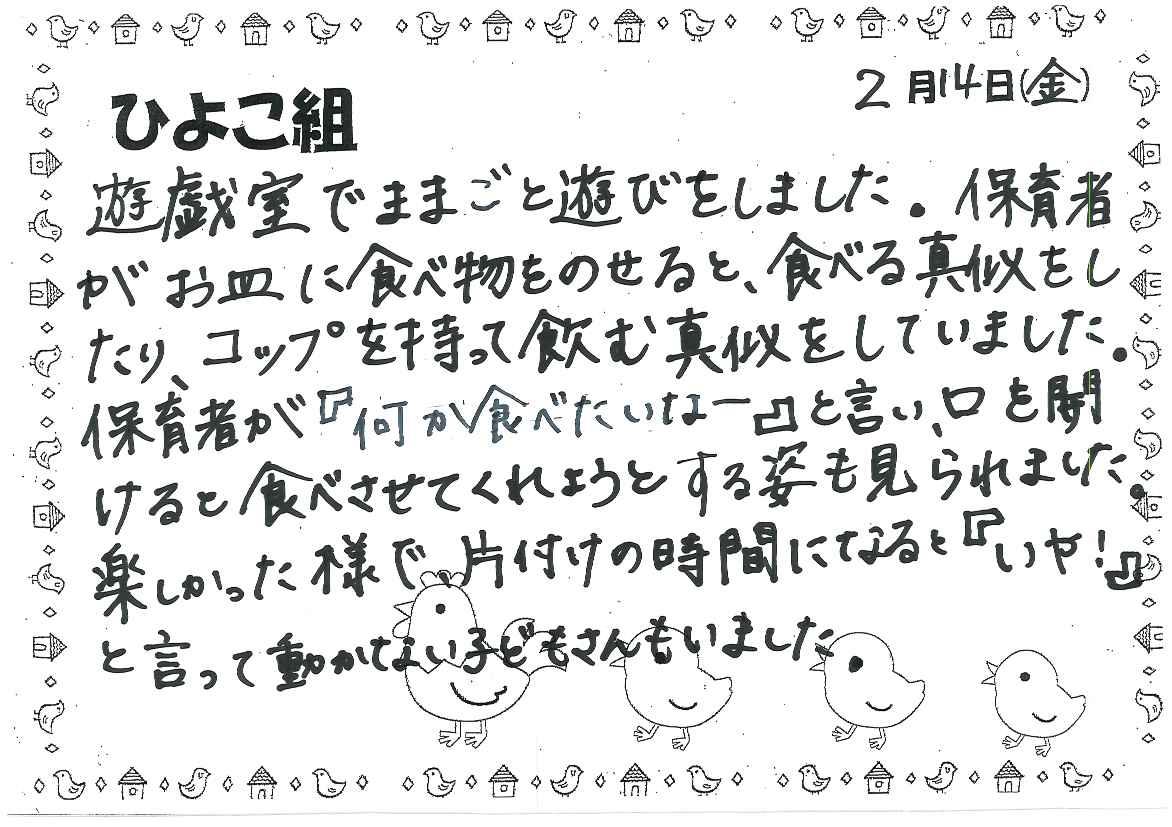 2月14日(金)
ひよこ組
遊戯室でままごと遊びをしました。保育者
がお皿に食べ物をのせると、食べる真似をし
たり、コップを持って飲む真似をしていました。
保育者が『何か食べたいなー』と言い、口を開
けると食べさせてくれようとする姿も見られました。
楽しかった様で、片付けの時間になると『いや!』
と言って動かない子どもさんもいました